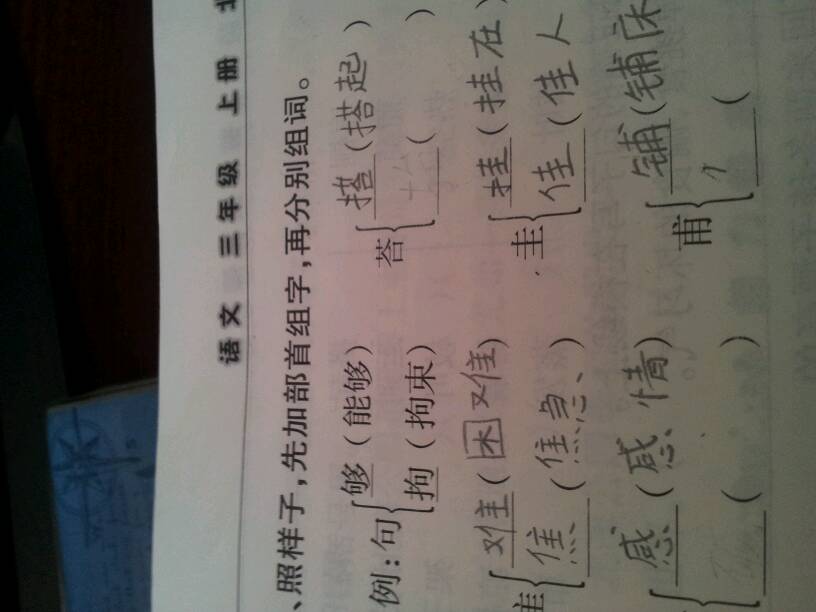 语文 三年级 上册
、照样子,先加部首组字,再分别组词。
例:句 够(能够) 荅 搭(搭起)
拘(拘束) ( )
难(困难) 圭 挂(挂在)
焦(焦急) 佳(佳人
感(感情) 甫 铺(铺床
( ) (